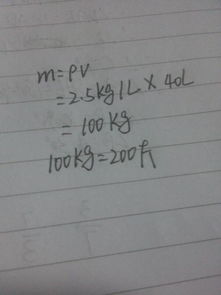 m=ρV
=2.5kg/L×40L
=100kg
100kg=200斤